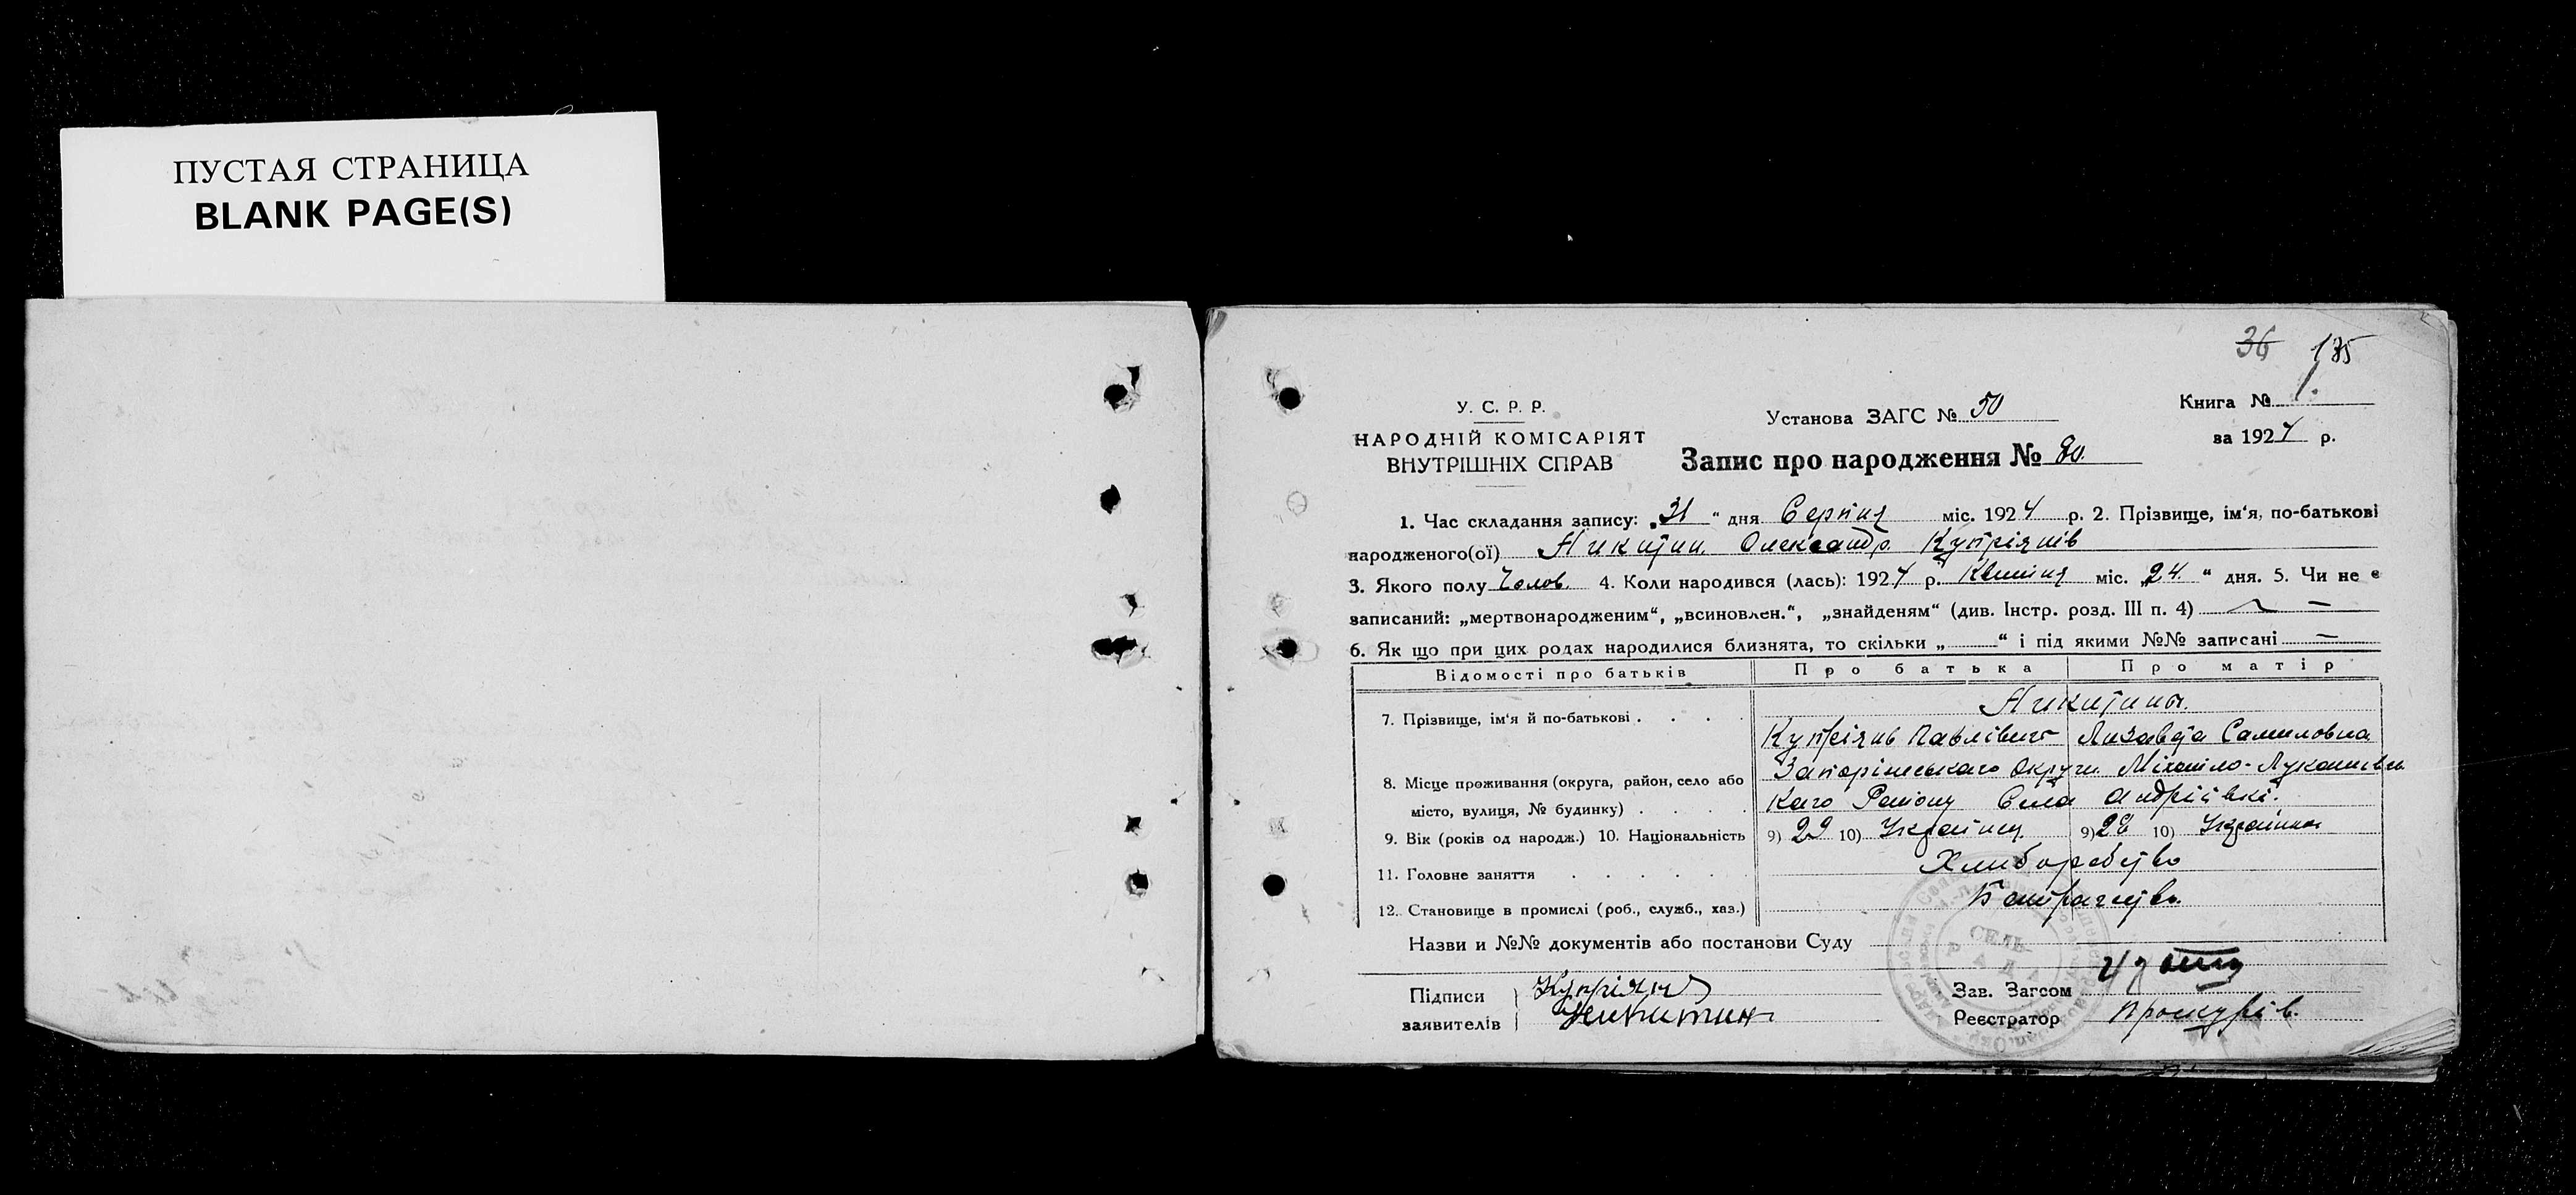 ПУСТАЯ СТРАНИЦА
BLANK PAGE(S)
36 175
У. С. Р. Р.
НАРОДНІЙ КОМІСАРІЯТ
ВНУТРІШНІХ СПРАВ
Установа ЗАГС № 50
Запис про народження № 80.
Книга № 1.
за 1924 р.
1. Час складання запису: „31" дня Серпня міс. 1924 р. 2. Прізвище, ім'я, по-батькові
народженого(ої) Никитин Олександр Купріянів
3. Якого полу Чолов. 4. Коли народився (лась): 1924 р. міс. „24." дня. 5. Чи не є
записаний: „мертвонародженим", „всиновлен.", „знайденям" (див. Інстр. розд. III п. 4) —
6. Як що при цих родах народилися близнята, то скільки „ " і під якими №№ записані —
Відомості про батьків Про батька Про матір
7. Прізвище, ім'я й по-батькові . . . .
Никитины.
Купріянь Павлівич Лизавета Самиловна
8. Місце проживання (округа, район, село або
місто, вулиця, № будинку) . . . .
Запоріжського Округи Міхайло-Лукашевсь
кого Району Села Андріївкі.
9. Вік (років од народж.) 10. Національність 9) 29 10) Українец 9) 28 10) Українка
11. Головне заняття . . . . . . Хлиборобство
12. Становище в промислі (роб., служб., хаз.) Батрацтво
Назви и №№ документів або постанови Суду
Підписи
заявителів
Купріян
Никитин
СЕЛЬ
РАДА
Зав. Загсом
Реєстратор